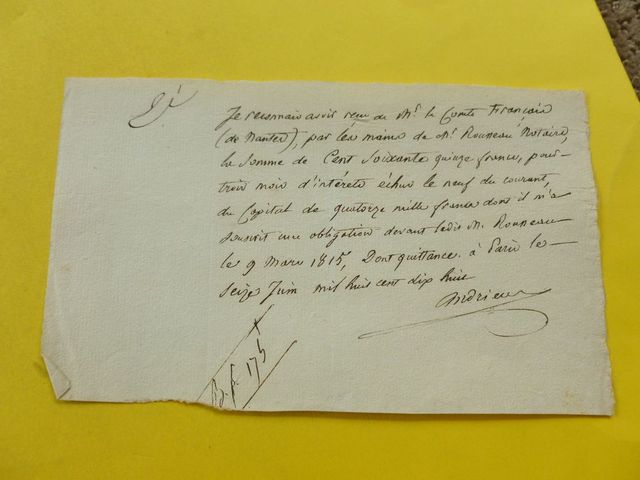 Je reconnais avoir reçu de Mr. le Comte Français
(de Nantes), par les mains de Mr. Rousseau Notaire,
la Somme de Cent Soixante quinze francs, pour
trois mois d'intérêts échus le neuf du courant,
du Capital de quatorze mille francs dont il m'a
souscrit une obligation devant ledit Mr. Rousseau
le 9 Mars 1815, Dont quittance. à Paris le
Seize Juin mil huit cent dix huit
Andrieux
B. p. f. 175